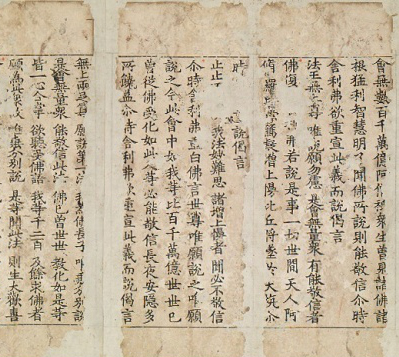 會無數百千萬億阿僧祇衆生曾見諸佛諸
根猛利智慧明了聞佛所說則能敬信尒時
舍利弗欲重宣此義而說偈言
法王無上尊 唯說願勿慮 是會無量衆 有能敬信者
佛復 弗若說是事一切世間天人阿
脩羅 驚疑增上慢比丘將墜於大坑尒
時 說偈言
止止 我法妙難思 諸增上慢者 聞必不敬信
尒時舍利弗重白佛言世尊唯願說之唯願
說之今此會中如我等比百千萬億世世已
曾從佛受化如此人等必能敬信長夜安隱多
所饒益尒時舍利弗欲重宣此義而說偈言
無上兩足尊 願說第一法 我爲佛長子 唯垂分別說
是會無量衆 能敬信此法 佛已曾世世 教化如是等
皆一心合掌 欲聽受佛語 我等千二百 及餘求佛者
願爲此衆故 唯垂分別說 是等聞此法 則生大歡喜